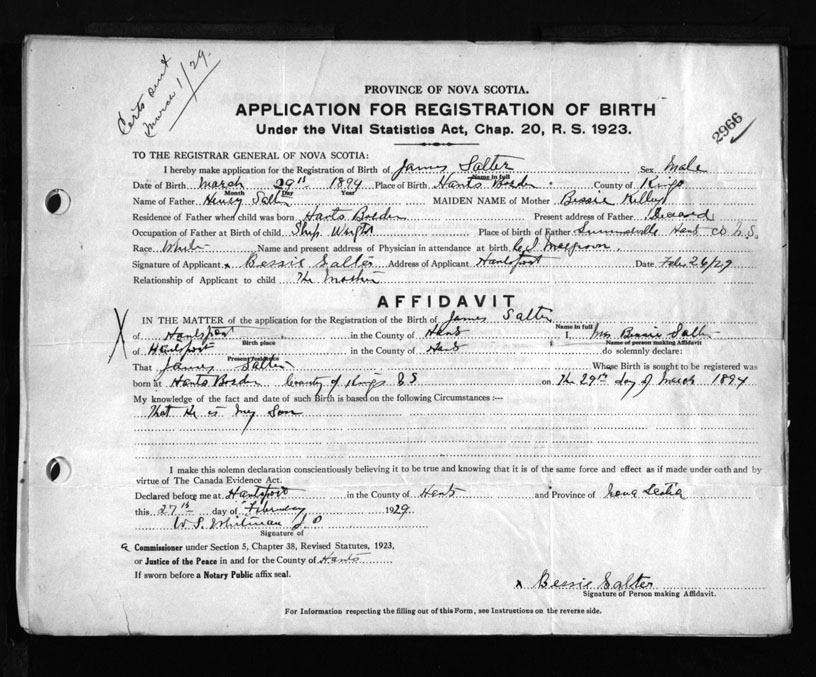 Certs sent
March 1/29.
PROVINCE OF NOVA SCOTIA.
APPLICATION FOR REGISTRATION OF BIRTH
Under the Vital Statistics Act, Chap. 20, R. S. 1923.
2966
TO THE REGISTRAR GENERAL OF NOVA SCOTIA:
I hereby make application for the Registration of Birth of James Salter Sex Male
Name in full
Date of Birth March 29th 1894 Place of Birth Hants Border County of Kings
Month Day Year
Name of Father Henry Salter MAIDEN NAME of Mother Bessie Kelley
Residence of Father when child was born Hants Border Present address of Father
Occupation of Father at Birth of child Ship Wright Place of birth of Father Summerville Hants Co N.S.
Race White Name and present address of Physician in attendance at birth
Signature of Applicant x Bessie Salter Address of Applicant Hantsport Date Feb 26/29
Relationship of Applicant to child The Mother
AFFIDAVIT
IN THE MATTER of the application for the Registration of the Birth of James Salter
Name in full
of Hantsport in the County of Hants I, Mrs Bessie Salter
Birth place Name of person making Affidavit
of Hantsport in the County of Hants do solemnly declare:
Present residence
That James Salter Whose Birth is sought to be registered was
born at Hants Border County of Kings on The 29th day of March 1894
My knowledge of the fact and date of such Birth is based on the following Circumstances :—
That He is my Son
I make this solemn declaration conscientiously believing it to be true and knowing that it is of the same force and effect as if made under oath and by
virtue of The Canada Evidence Act.
Declared before me at Hantsport in the County of Hants and Province of Nova Scotia
this 27th day of February 1929
W. S. Whitman J P
Signature of
a Commissioner under Section 5, Chapter 38, Revised Statutes, 1923,
or Justice of the Peace in and for the County of Hants
If sworn before a Notary Public affix seal.
x Bessie Salter
Signature of Person making Affidavit.
For Information respecting the filling out of this Form, see Instructions on the reverse side.